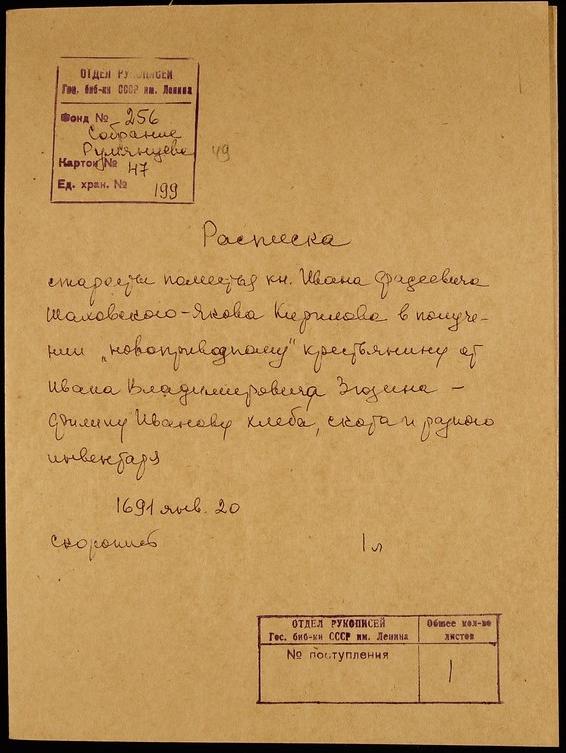 ОТДЕЛ РУКОПИСЕЙ
Гос. биб-ки СССР им. Ленина
Фонд № 256
Собрание
Румянцева
Картон № 47
49
Ед. хран. № 199
Расписка
старосты поместья кн. Ивана Фадеевича
Шаховского-Якова Кирилова в получе-
нии „новоприводному" крестьянину от
Ивана Владимировича Зюзина –
Филипу Иванову хлеба, скота и разного
инвентаря
1691 янв. 20
скоропись 1 л
ОТДЕЛ РУКОПИСЕЙ
Гос. биб-ки СССР им. Ленина
Общее кол-во
листов
№ поступления
1